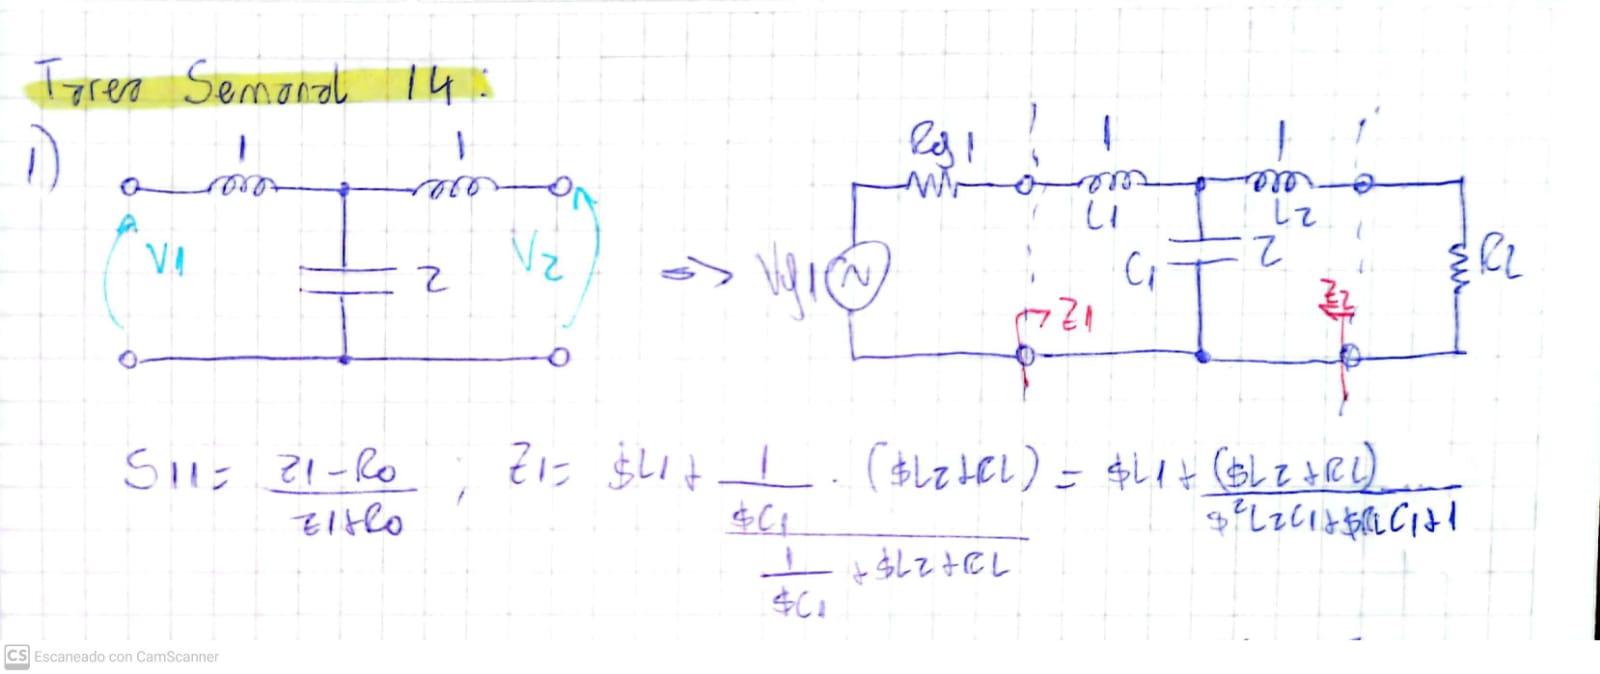 Tarea Semanal 14:
1)
1 1
V1 2 V2
=> Vg1 Rg1 1 1
L1 L2
C1 2 RL
Z1 Z2
S11 = Z1-Ro / Z1+Ro ; Z1 = $L1 + 1/$C1 . ($L2+RL) / 1/$C1 + $L2+RL = $L1 + ($L2+RL) / $²L2C1+$RLC1+1
CS Escaneado con CamScanner